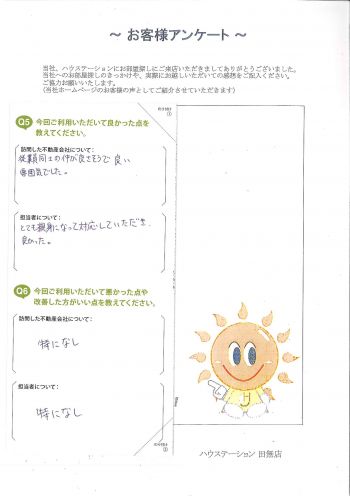 ～ お客様アンケート ～
当社、ハウステーションにお部屋探しにご来店いただきましてありがとうございました。
当社へのお部屋探しのきっかけや、実際にお越しいただいての感想をご記入ください。
ご協力お願いいたします。
(当社ホームページのお客様の声としてご紹介させていただきます)
Q5 今回ご利用いただいて良かった点を
教えてください。
訪問した不動産会社について:
従業員同士の仲が良さそうで 良い
雰囲気でした。
担当者について:
とても親身になって対応していただき
良かった。
Q6 今回ご利用いただいて悪かった点や
改善した方がいい点を教えてください。
訪問した不動産会社について:
特になし
担当者について:
特になし
ハウステーション 田無店